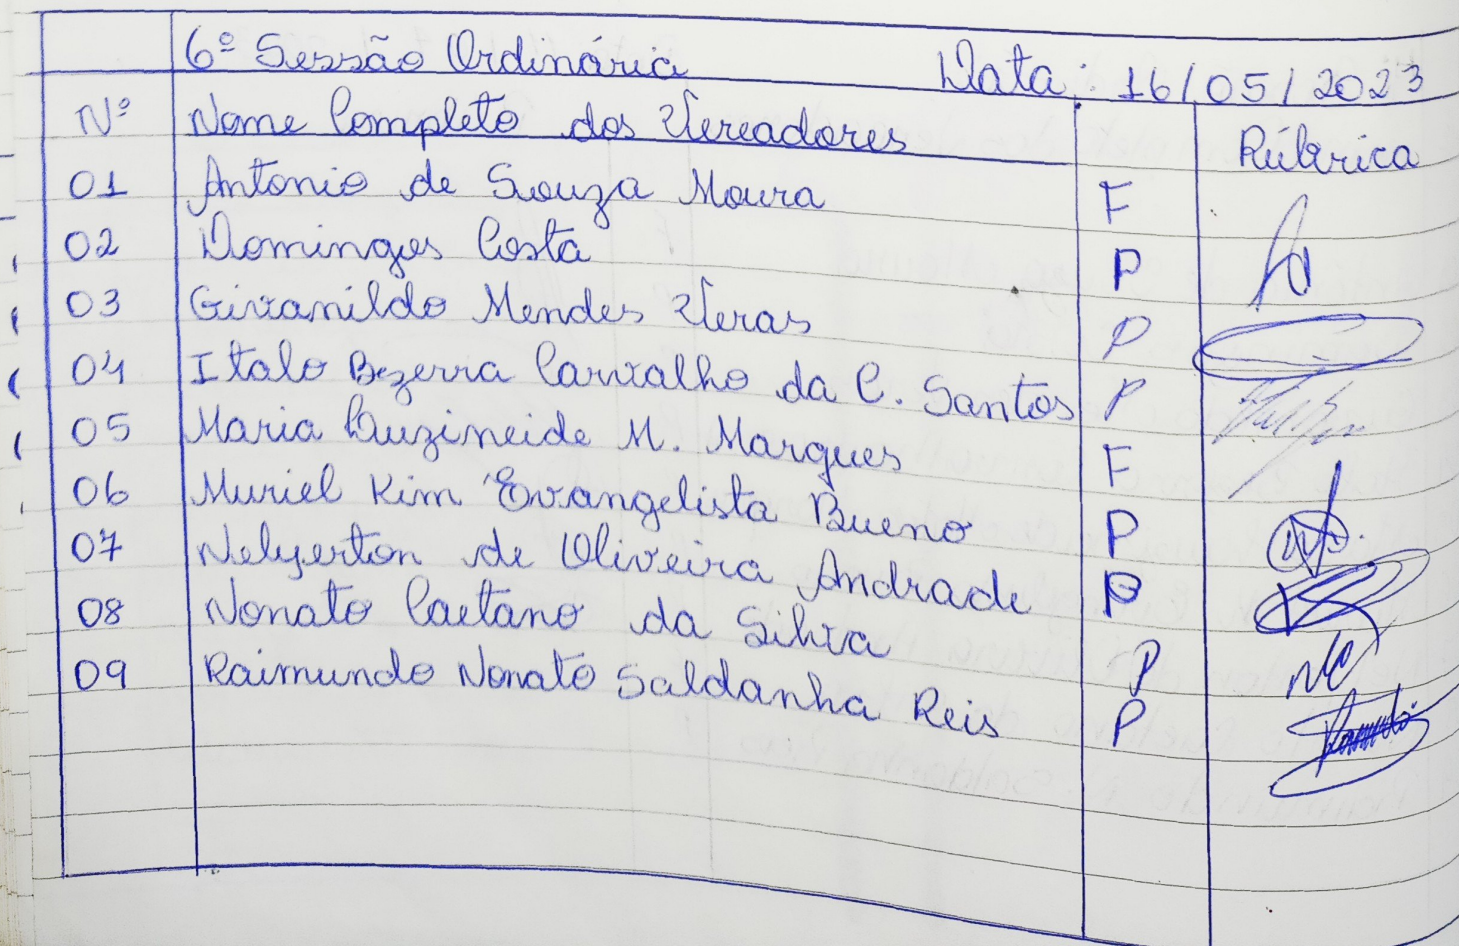 6º Sessão Ordinária Data: 16/05/2023
Nº Nome Completo dos Vereadores Rúbrica
01 Antonio de Souza Moura F
02 Domingos Costa P
03 Givanildo Mendes Veras P
04 Italo Bezerra Carvalho da C. Santos P
05 Maria Luzineide M. Marques F
06 Muriel Kim Evangelista Bueno P
07 Nelyerton de Oliveira Andrade P
08 Nonato Caetano da Silva P
09 Raimundo Nonato Saldanha Reis P